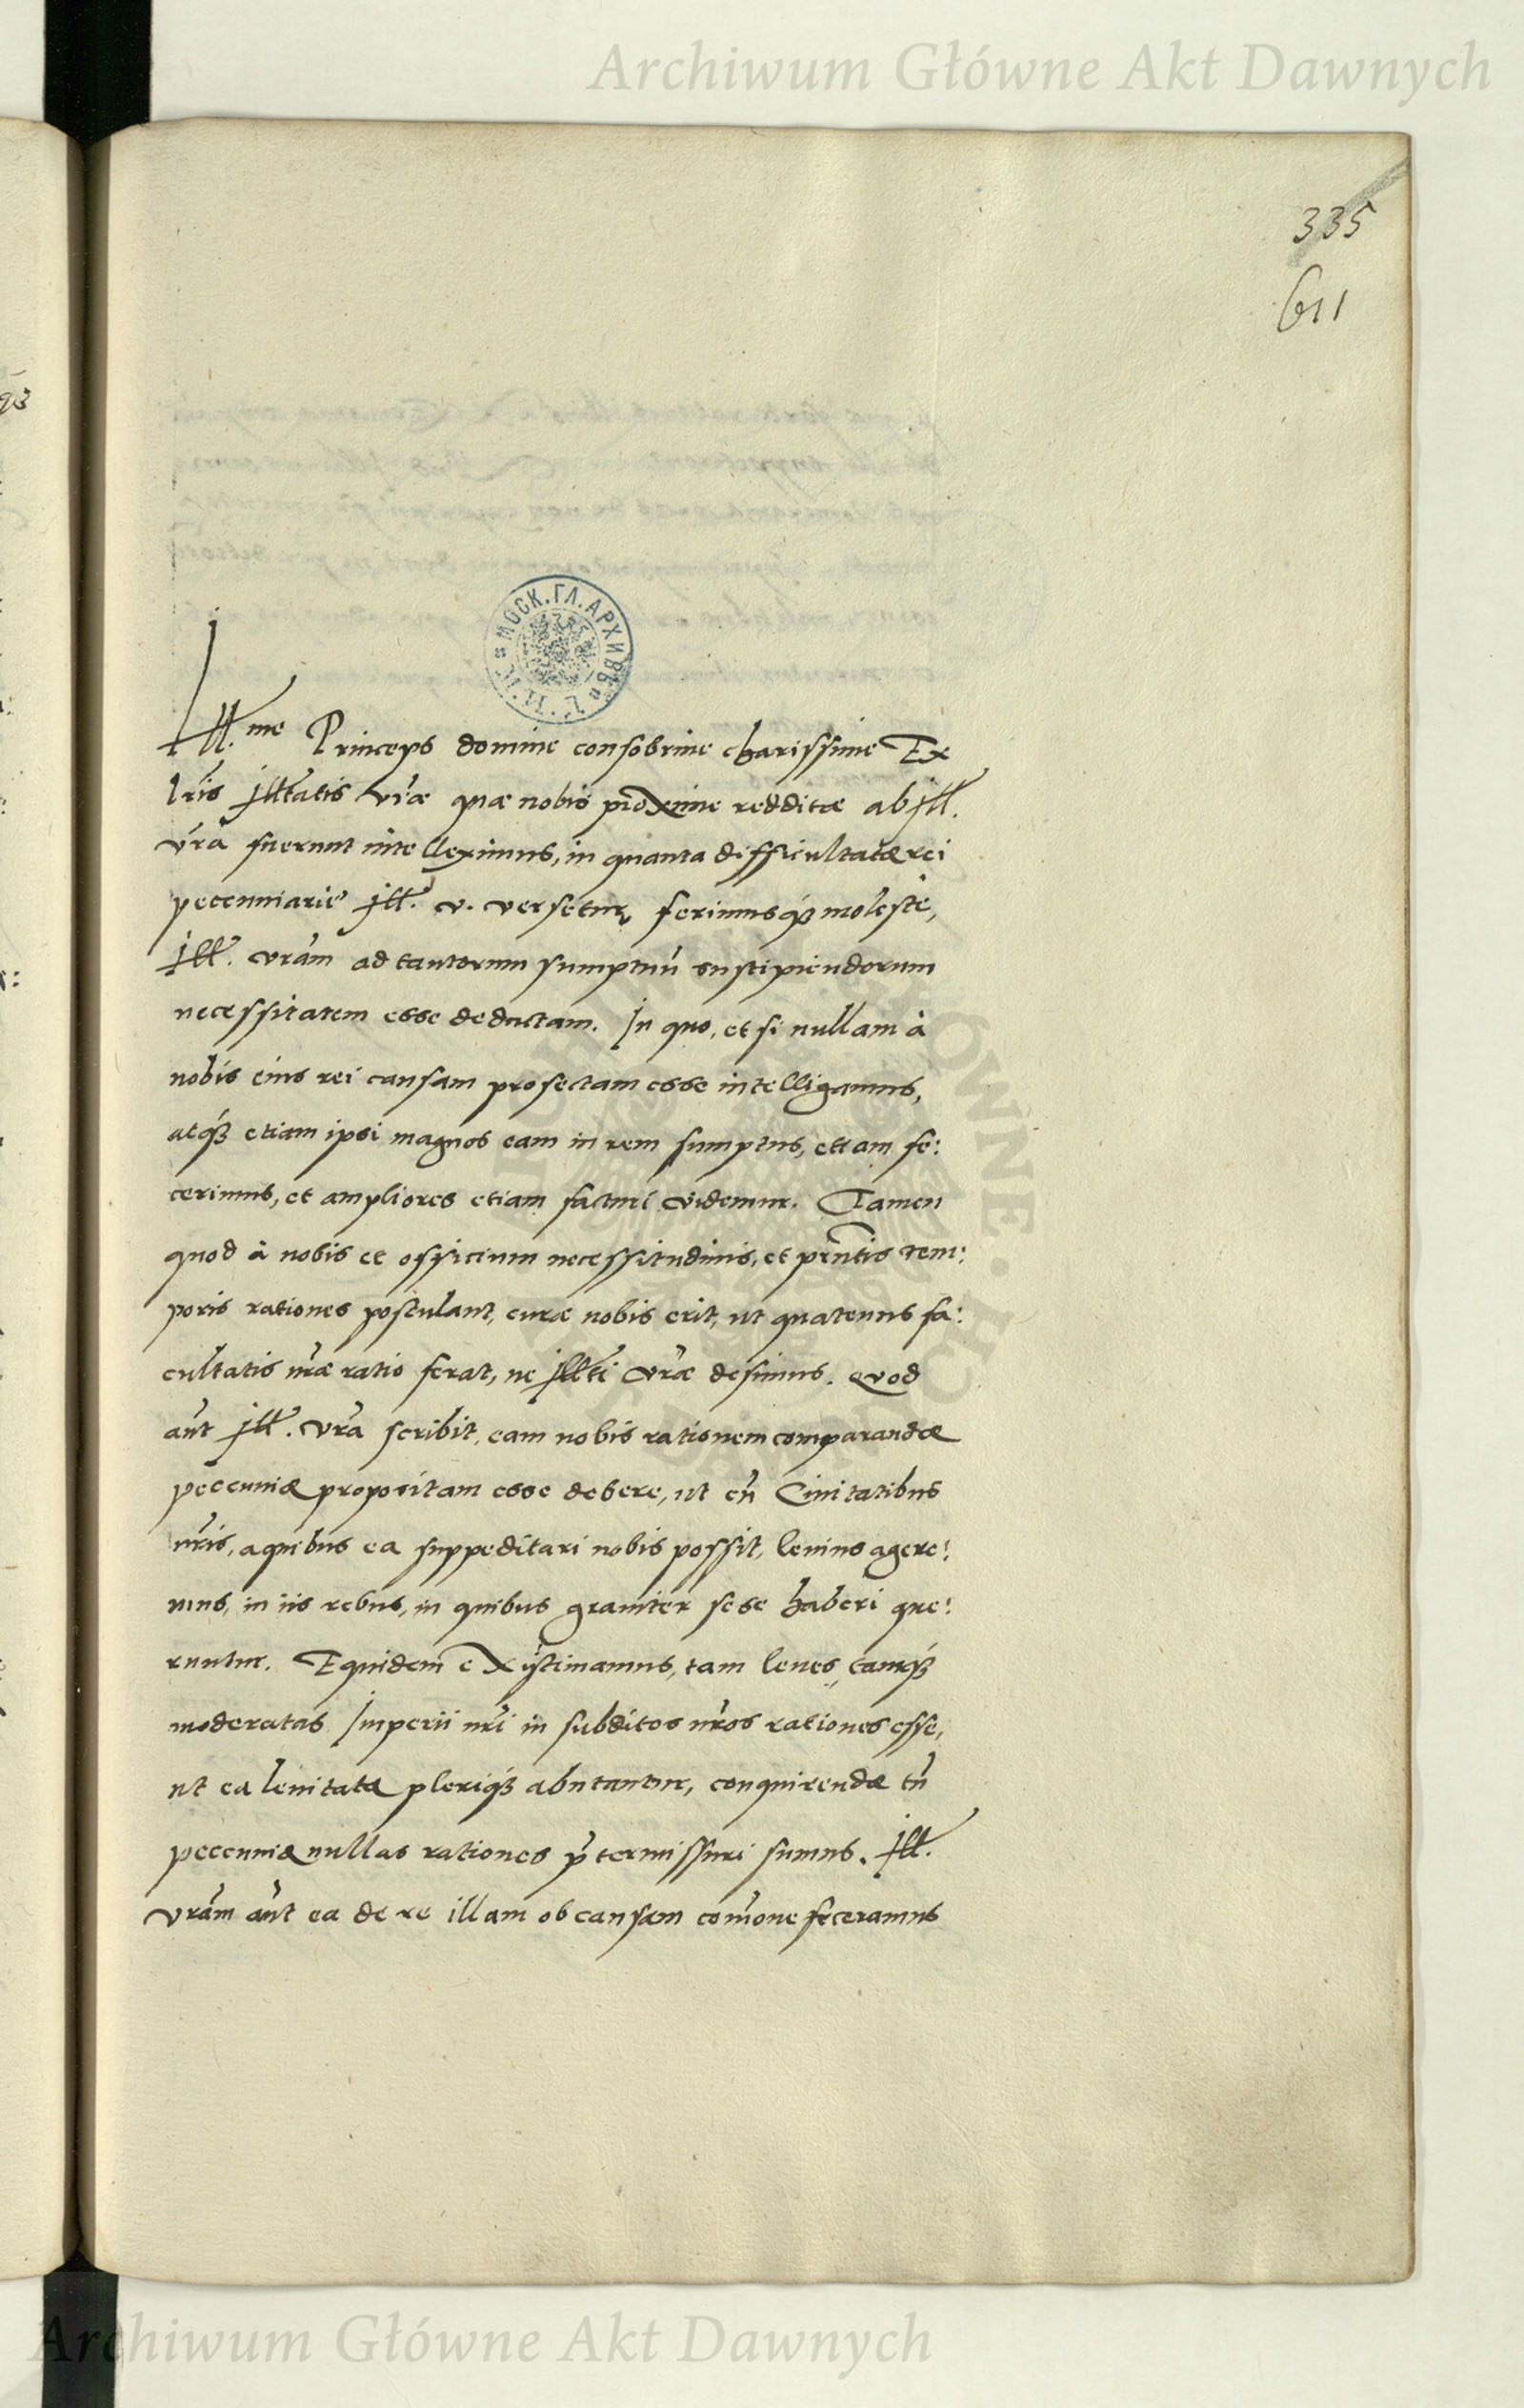 Archiwum Główne Akt Dawnych
335
611
МОСК. ГЛ. АРХИВЪ
Ill.me Princeps domine consobrine charissime Ex
lr̃is Illtatis vr̃ae quae nobis proxime redditae ab Ill.
vr̃a fuerunt intelleximus, in quanta difficultate rei
pecuniarie Ill. v. versetur, ferimusq́3 moleste,
Ill. vrãm ad tantorum sumptuũ suscipiendorum
necessitatem esse deductam. In quo, et si nullam à
nobis eius rei causam profectam esse intelligamus,
atq́3 etiam ipsi magnos eam in rem sumptus, etiam fe:
cerimus, et ampliores etiam facturi videmur. Tamen
quod à nobis et officium necessitudinis, et prñtis tem:
poris rationes postulant, curae nobis erit, ut quatenus fa:
cultatis nr̃ae ratio ferat, ne Illti vr̃ae desimus. Quod
aũt Ill. vr̃a scribit, eam nobis rationem comparandae
pecuniae propositam esse debere, ut cũ Ciuitatibus
nr̃is, a quibus ea suppeditari nobis possit, lenius agere:
mus, in iis rebus, in quibus grauiter sese haberi que:
runtur. Equidem existimamus, tam leues, tamq́3
moderatas Imperii nr̃i in subditos nr̃os rationes esse,
ut ea lenitate pleriq́3 abutantur, conquirendae tñ
pecuniae nullas rationes p̃termissuri sumus. Ill.
vrãm aũt ea de re illam ob causam com̃onefeceramus
Archiwum Główne Akt Dawnych